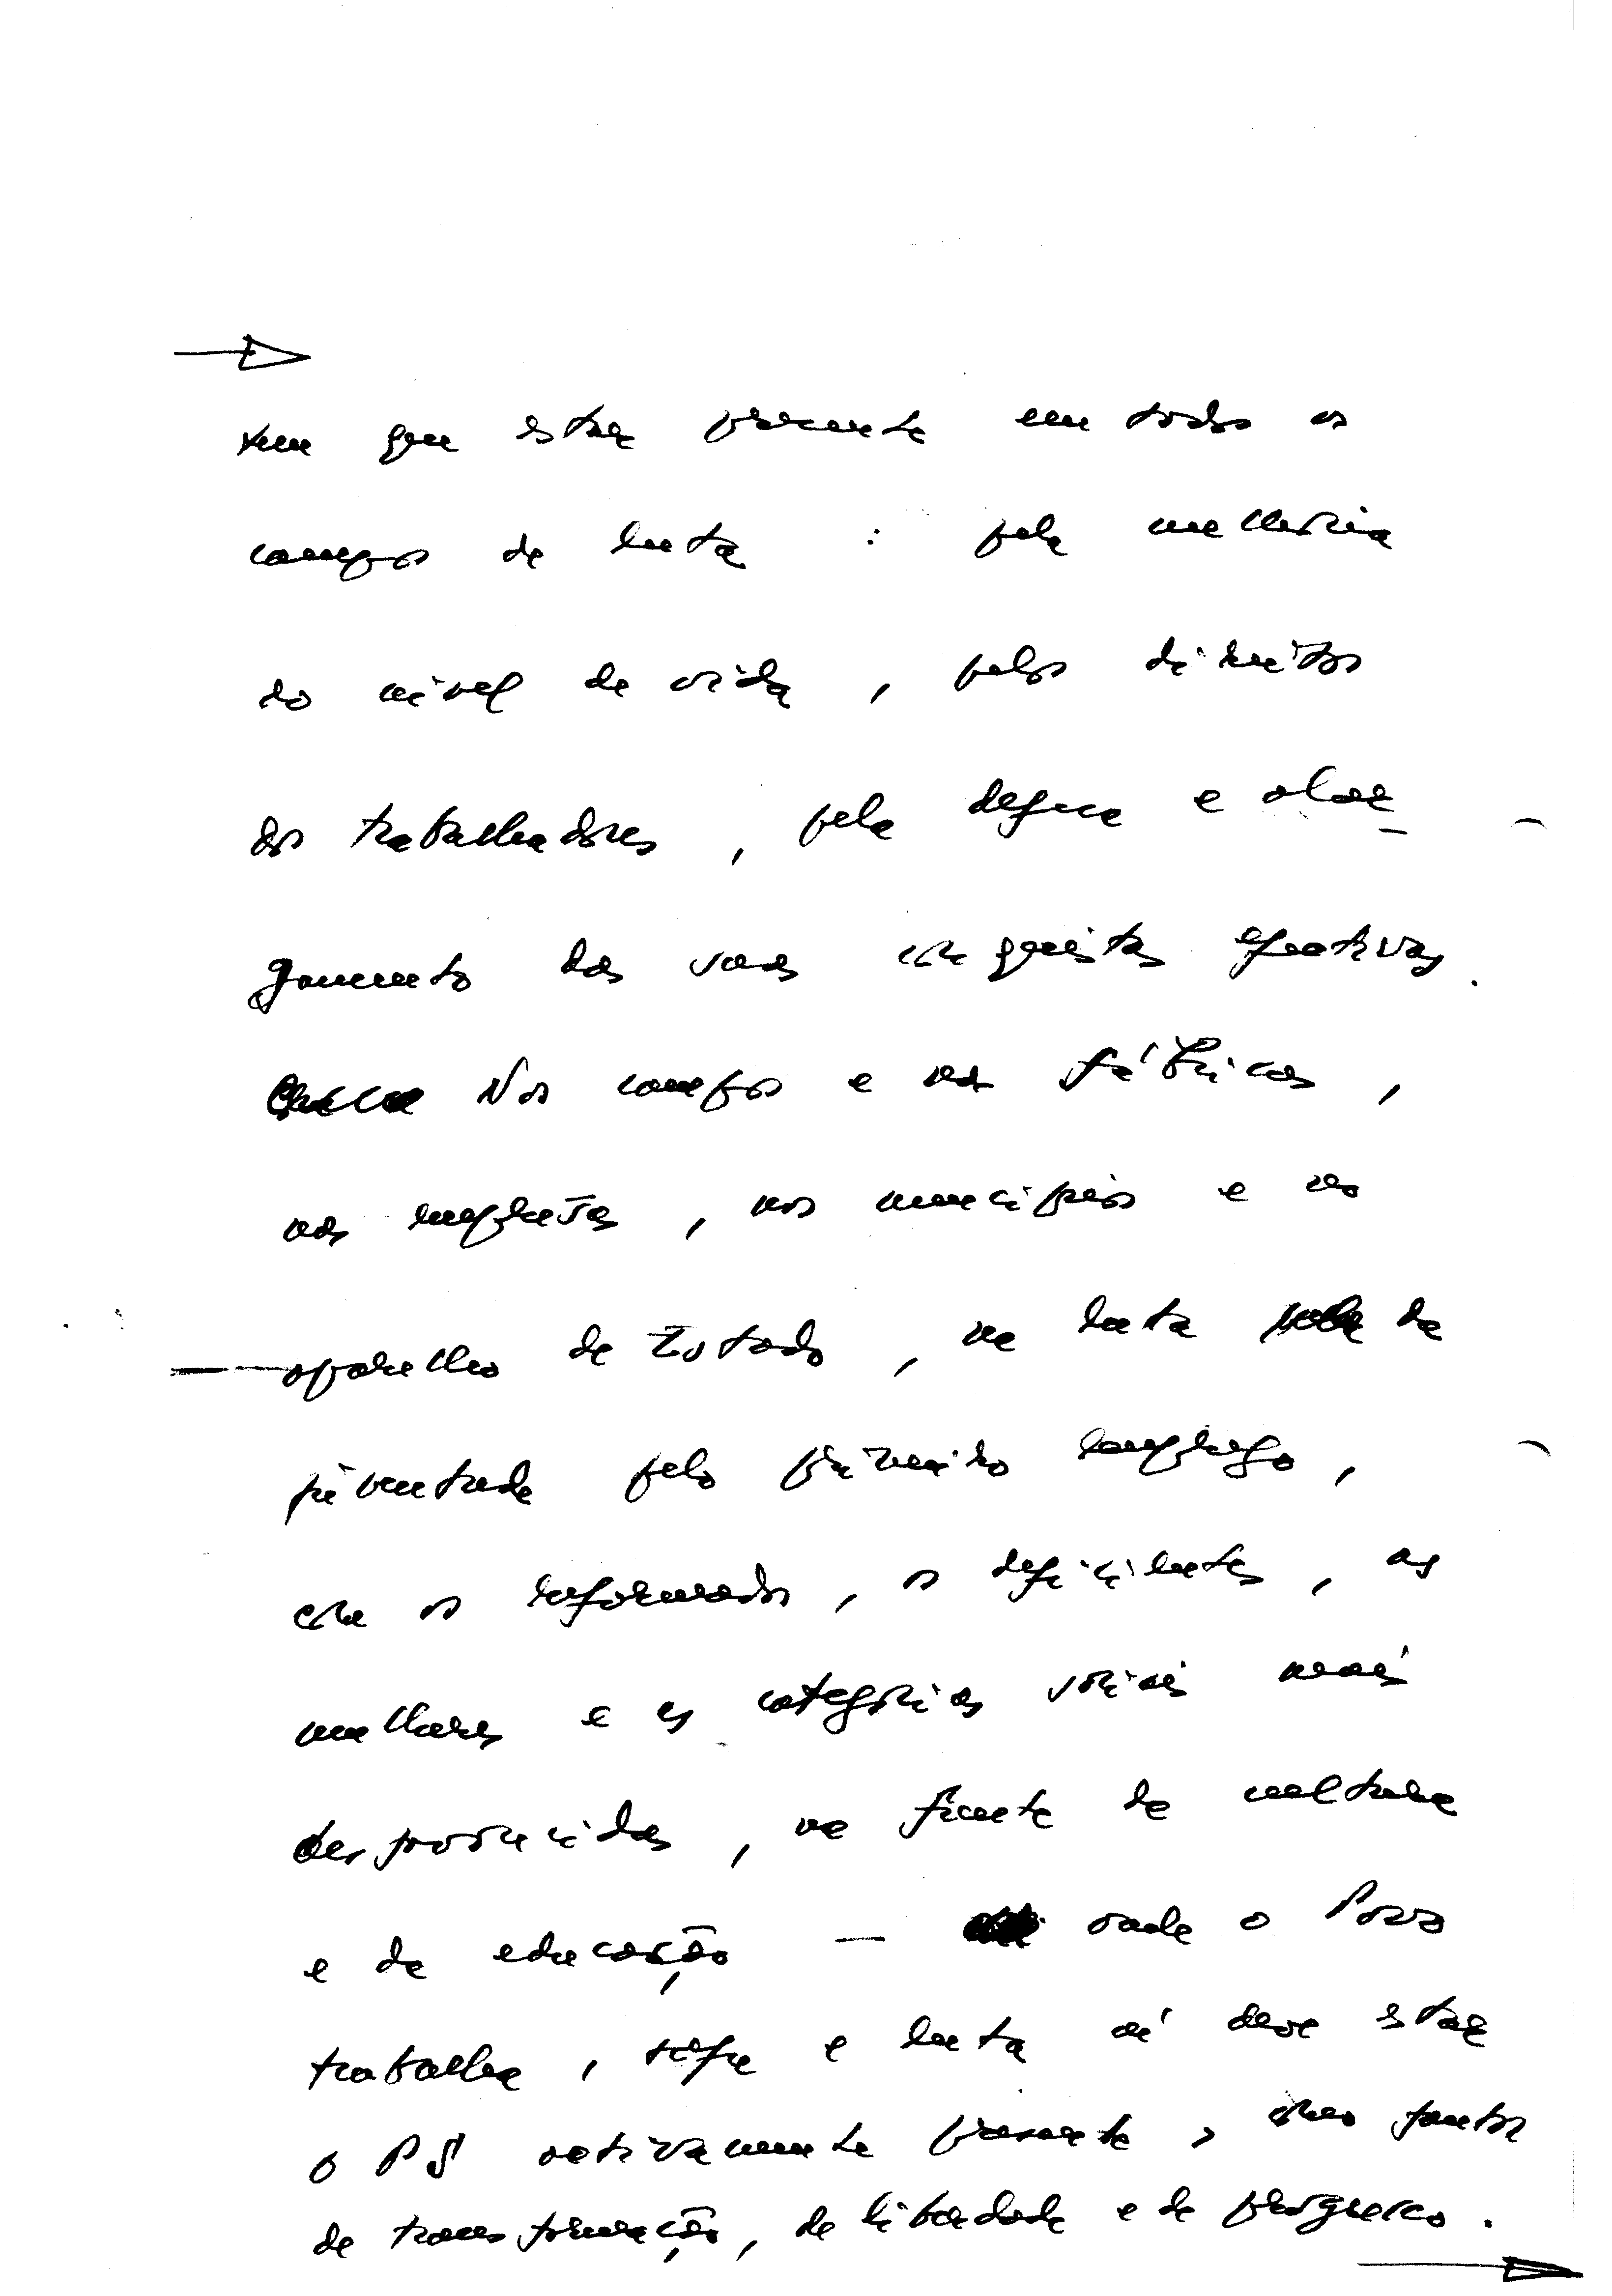 tem que estar presente em todos os
campos de luta : pela melhoria
do nível de vida , pelos direitos
dos trabalhadores , pela defesa e alar-
gamento das suas conquistas efectivas .
Nos campos e nas fábricas ,
nas empresas , nos municípios e no
aparelho de Estado , na luta da
juventude pelo primeiro emprego ,
com os reformados , os deficientes , as
mulheres e as categorias sociais mais
desprotegidas , na frente da cultura
e da educação — onde o Povo
trabalha , sofre e luta aí deve estar
o PS activamente presente , como factor
de transformação , de liberdade e de progresso .